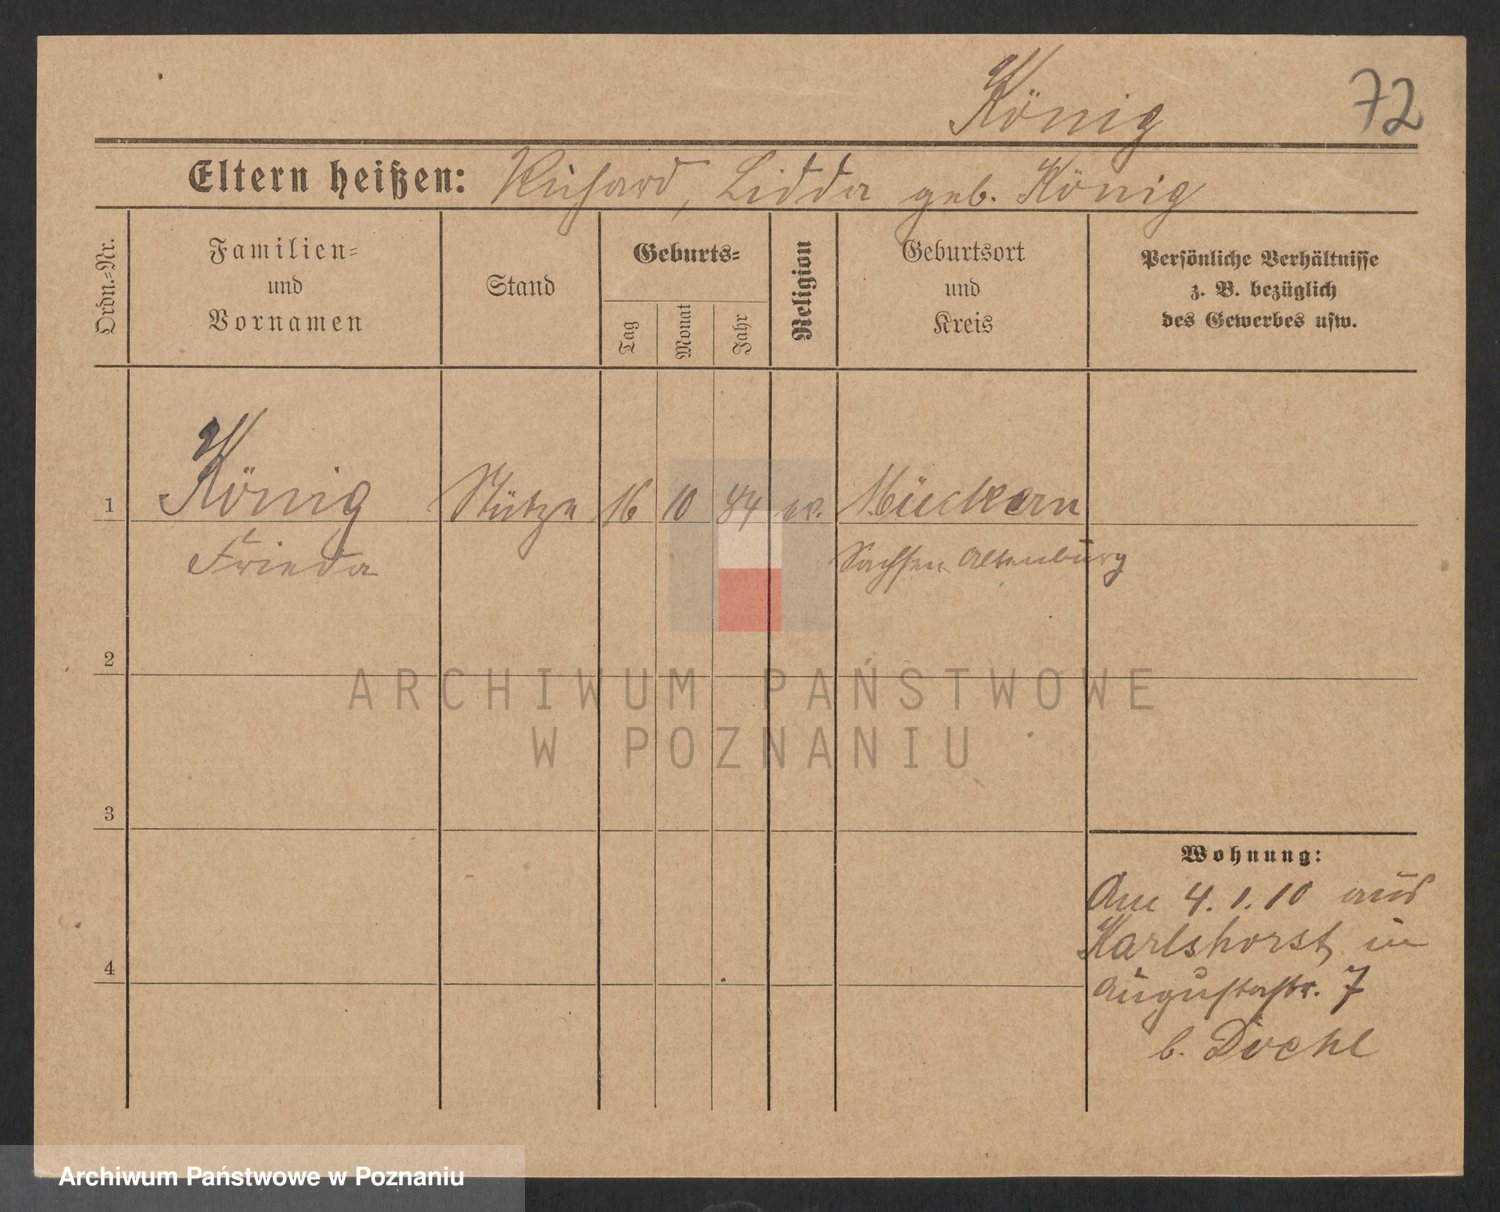 König 72
Eltern heißen: Richard, Lidda geb. König
Ordn.-Nr.
Familien-
und
Vornamen
Stand
Geburts-
Tag
Monat
Jahr
Religion
Geburtsort
und
Kreis
Persönliche Verhältnisse
z. B. bezüglich
des Gewerbes usw.
1 König Stütze 16 10 84 ev. Mückern
Frieda Sachsen Altenburg
2
ARCHIWUM PAŃSTWOWE
W POZNANIU
3
Wohnung:
Am 4. 1. 10 aus
Karlshorst in
4
Augustastr. 7
b. Doehl
Archiwum Państwowe w Poznaniu